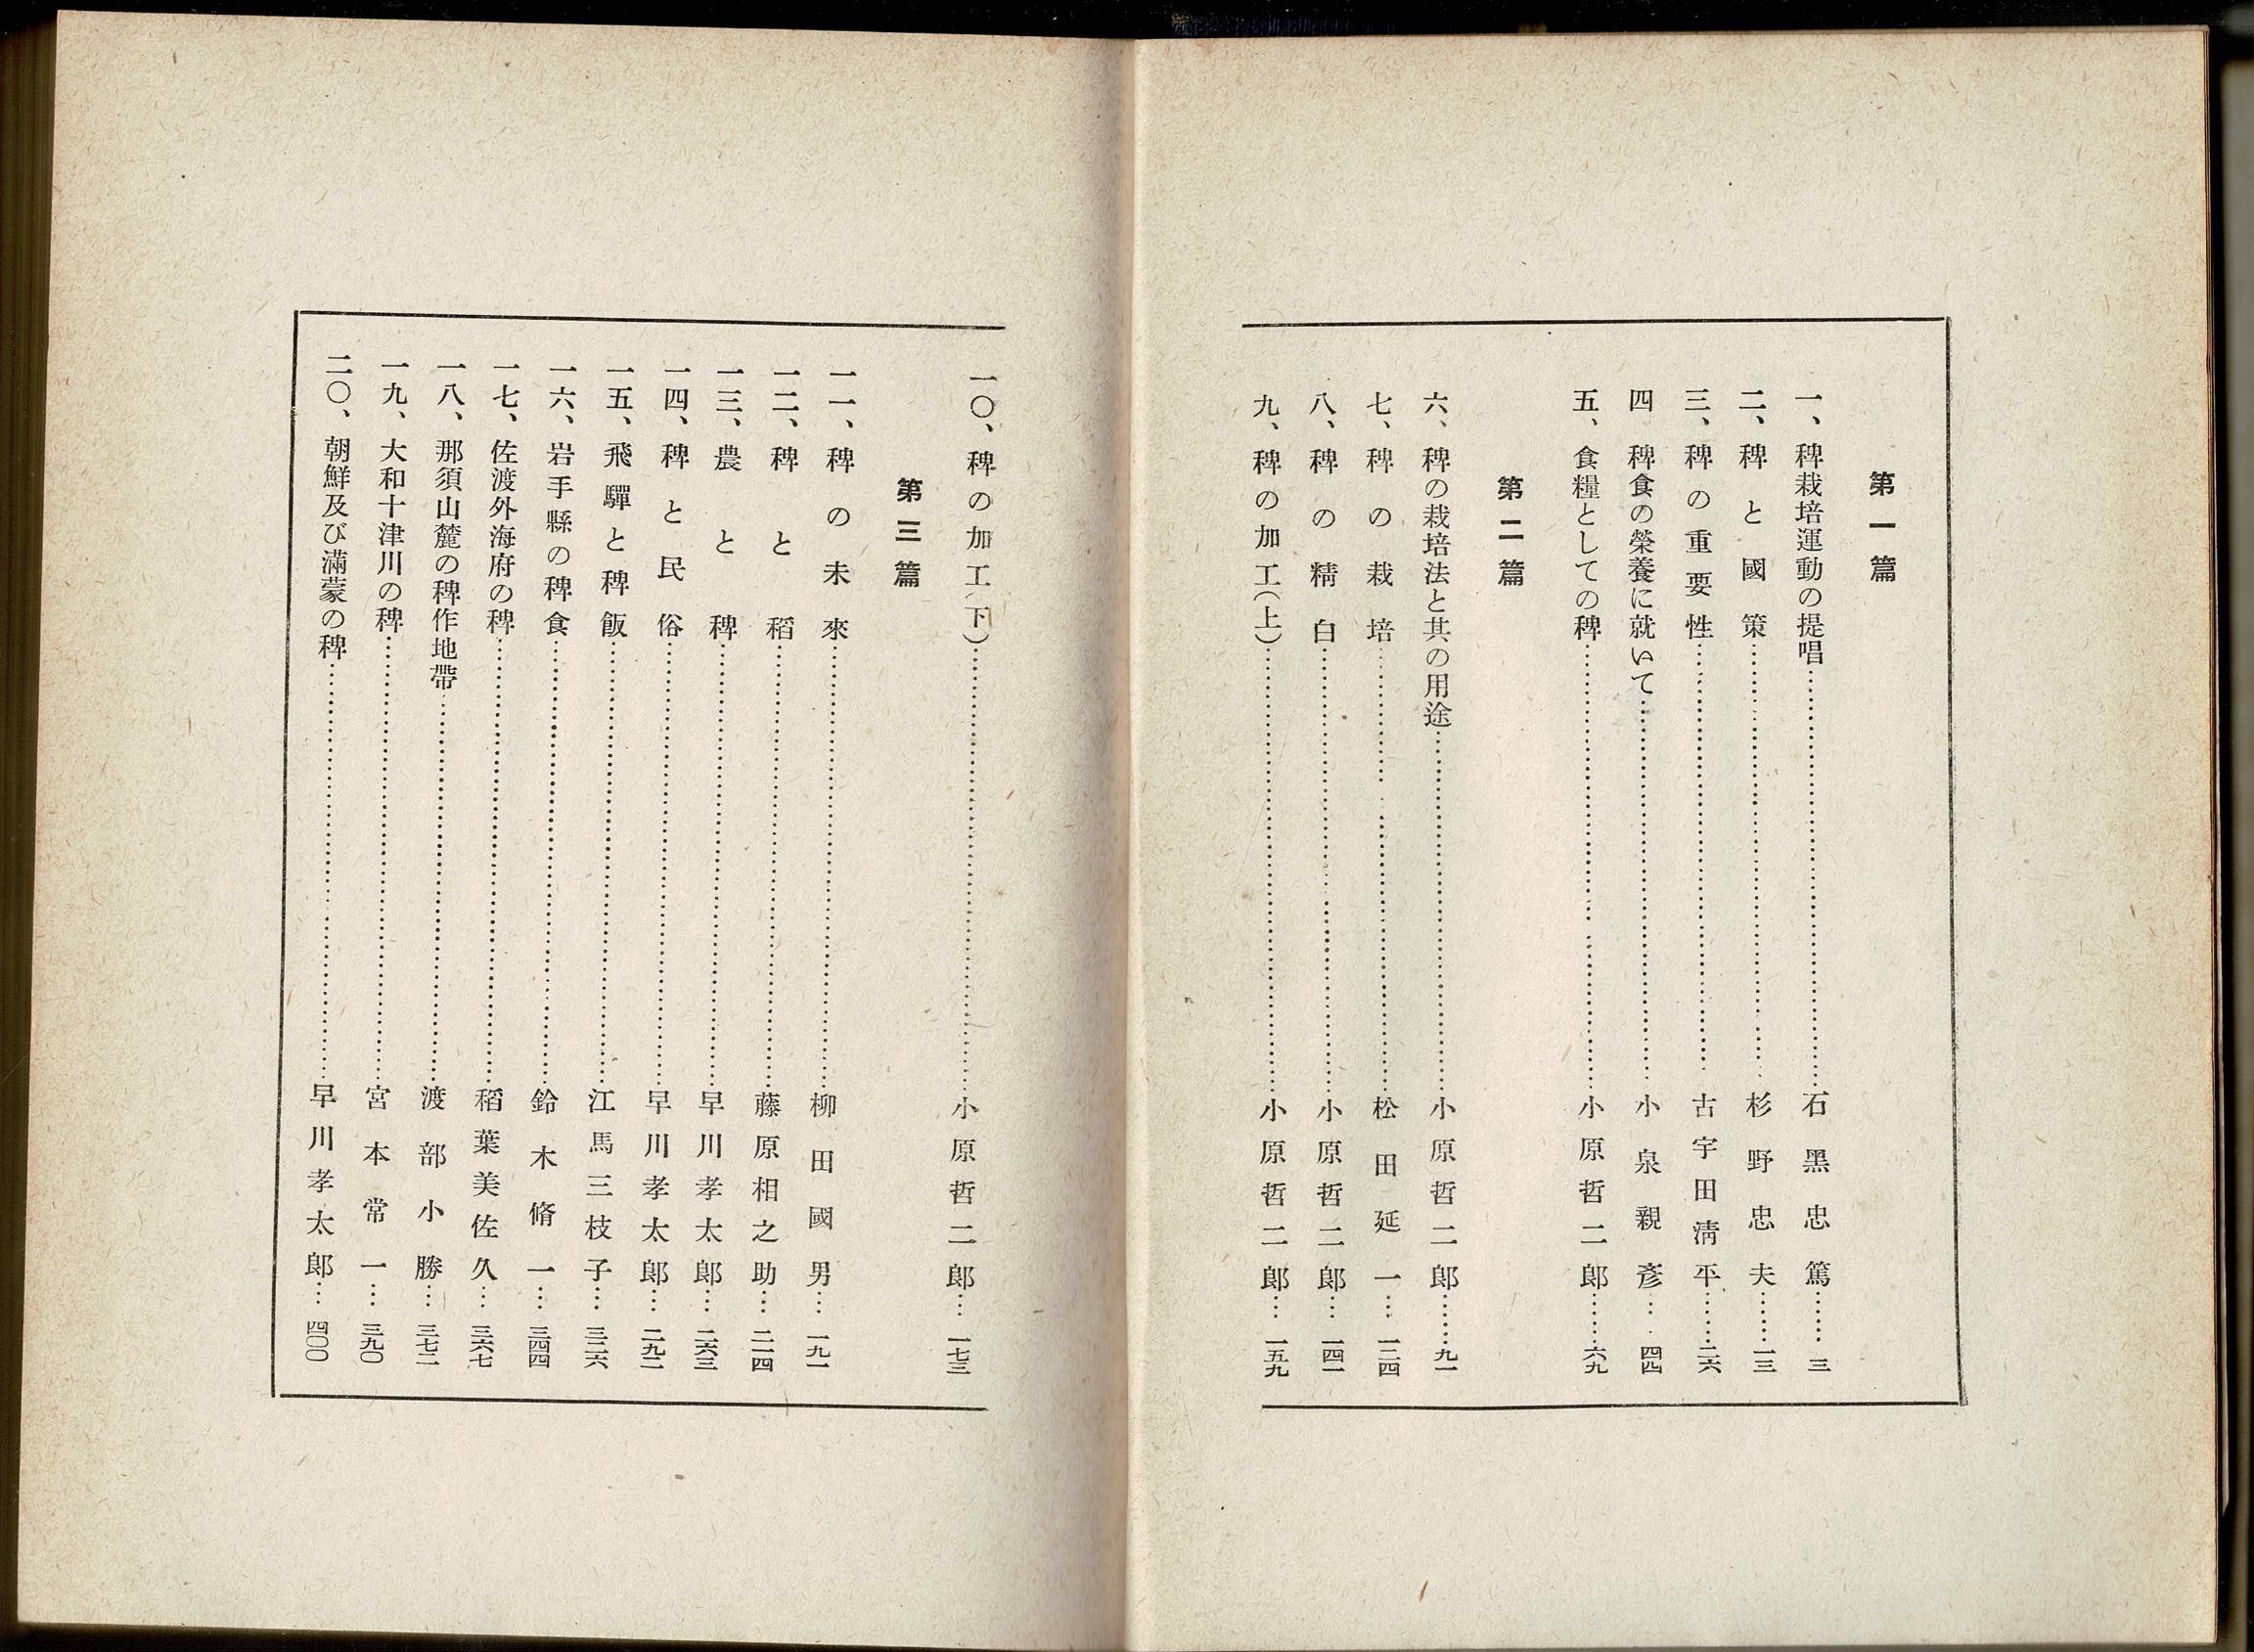 第一篇
一、稗栽培運動の提唱……石黑忠篤……三
二、稗と國策……杉野忠夫……一三
三、稗の重要性……古宇田淸平……二六
四 稗食の榮養に就いて……小泉親彥……四四
五、食糧としての稗……小原哲二郎……六九
第二篇
六、稗の栽培法と其の用途……小原哲二郎……九一
七、稗の栽培……松田延一……一二四
八、稗の精白……小原哲二郎……一四一
九、稗の加工(上)……小原哲二郎……一五九
一〇、稗の加工(下)……小原哲二郎……一七三
第三篇
一一、稗の未來……柳田國男……一九一
一二、稗と稻……藤原相之助……二一四
一三、農と稗……早川孝太郎……二六三
一四、稗と民俗……早川孝太郎……二九二
一五、飛驒と稗飯……江馬三枝子……三二六
一六、岩手縣の稗食……鈴木脩一……三四四
一七、佐渡外海府の稗……稻葉美佐久……三六七
一八、那須山麓の稗作地帶……渡部小勝……三七二
一九、大和十津川の稗……宮本常一……三九〇
二〇、朝鮮及び滿蒙の稗……早川孝太郎……四〇〇